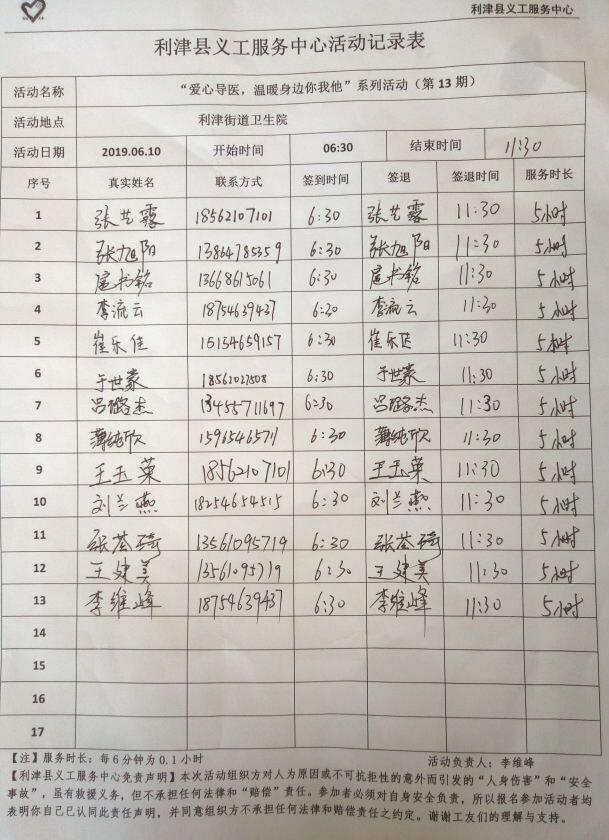 利津县义工服务中心
利津县义工服务中心活动记录表
活动名称 “爱心导医，温暖身边你我他”系列活动（第 13 期）
活动地点 利津街道卫生院
活动日期 2019.06.10 开始时间 06:30 结束时间 11:30
序号 真实姓名 联系方式 签到时间 签退 签退时间 服务时长
1 张艺露 18562107101 6:30 张艺露 11:30 5小时
2 张旭阳 13864785359 6:30 张旭阳 11:30 5小时
3 扈书铭 13668615061 6:30 扈书铭 11:30 5小时
4 李流云 18754639437 6:30 李流云 11:30 5小时
5 崔乐佳 15134659157 6:30 崔乐佳 11:30 5小时
6 于世豪 18561027508 6:30 于世豪 11:30 5小时
7 吕璐杰 13455711697 6:30 吕璐杰 11:30 5小时
8 薄纯欣 15965465711 6:30 薄纯欣 11:30 5小时
9 王玉菓 18562107101 6:30 王玉菓 11:30 5小时
10 刘兰燕 18254654515 6:30 刘兰燕 11:30 5小时
11 张荃琦 13561095719 6:30 张荃琦 11:30 5小时
12 王建美 13561095719 6:30 王建美 11:30 5小时
13 李维峰 18754639437 6:30 李维峰 11:30 5小时
14
15
16
17
【注】服务时长：每 6 分钟为 0.1 小时 活动负责人：李维峰
【利津县义工服务中心免责声明】本次活动组织方对人为原因或不可抗拒性的意外而引发的“人身伤害”和“安全
事故”，虽有救援义务，但不承担任何法律和“赔偿”责任。参加者必须对自身安全负责，所以报名参加活动者均
表明你自己已认同此责任声明，并同意组织方不承担任何法律和赔偿责任之约定。谢谢工友们的理解与支持。